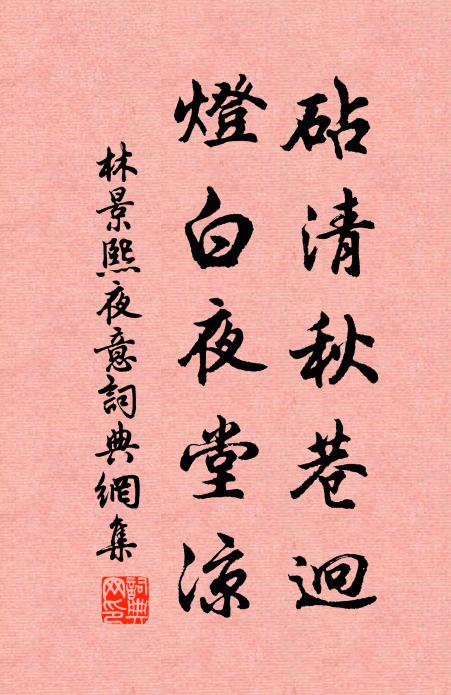 砧清秋巷迥
燈白夜堂涼
林景熙夜意詞典網集
詞典网印